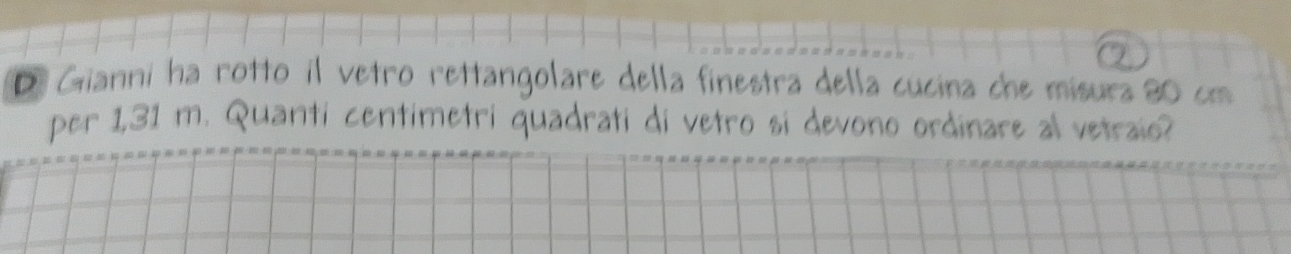 2
D Gianni ha rotto il vetro rettangolare della finestra della cucina che misura 80 cm
per 1,31 m. Quanti centimetri quadrati di vetro si devono ordinare al vetraio?